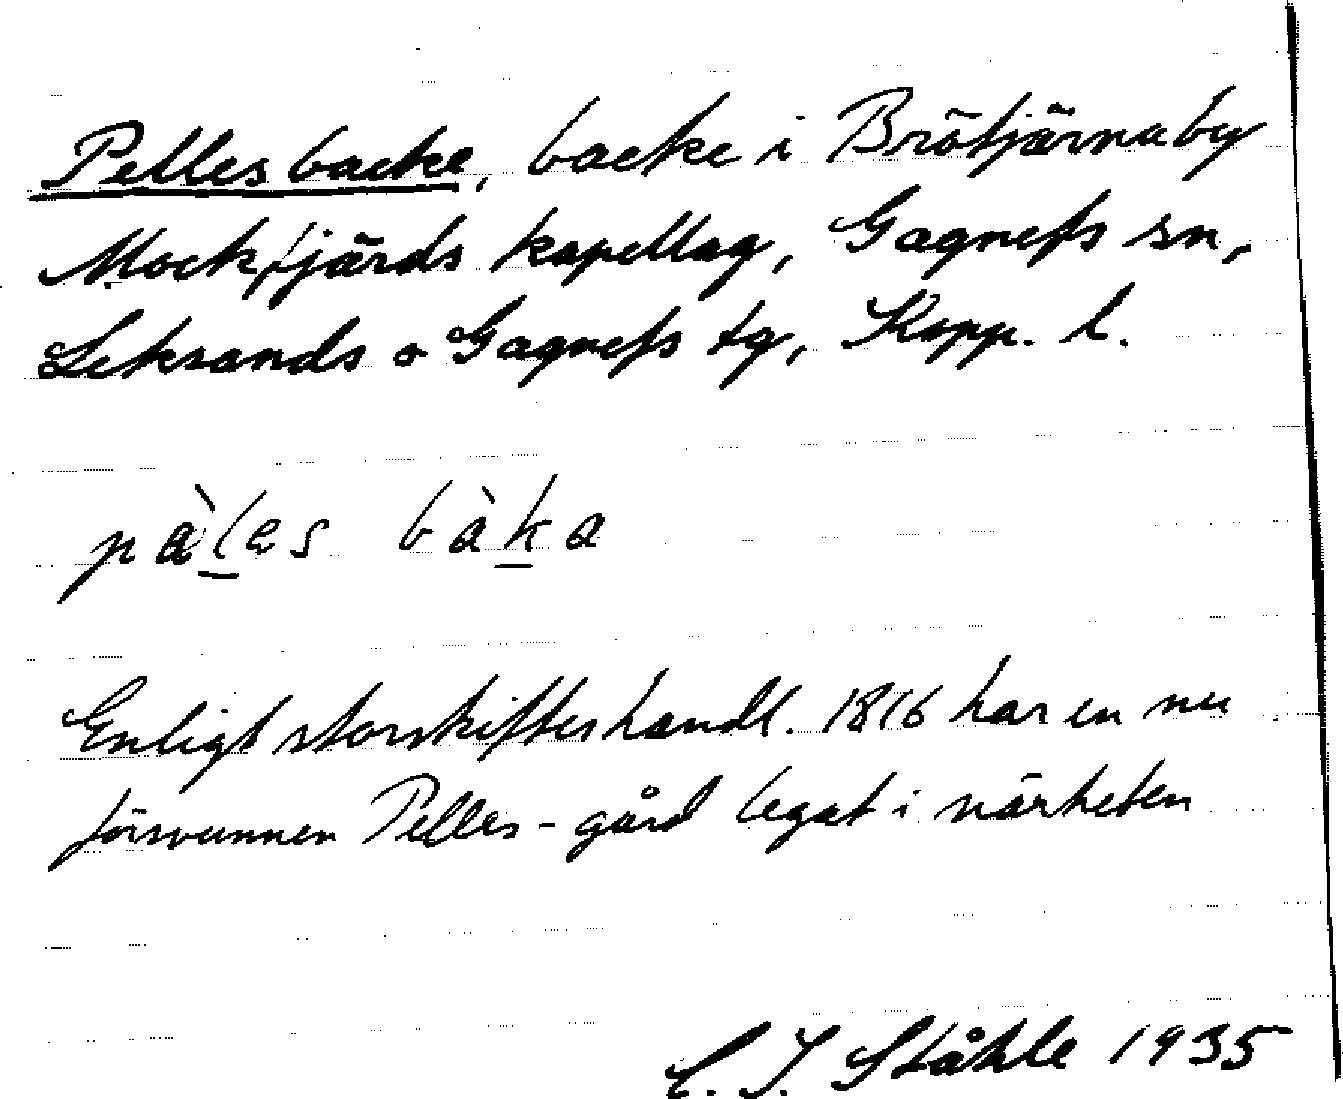 Pelles backe, backe i Brötjärna by
Mockfjärds kapellag, Gagnefs sn,
Leksands o Gagnefs tg, Kopp. l.
pàl̲es bàk̲a
Enligt storskifteshandl. 1816 har en nu
försvunnen Pelles-gård legat i närheten
C. I. Ståhle 1935